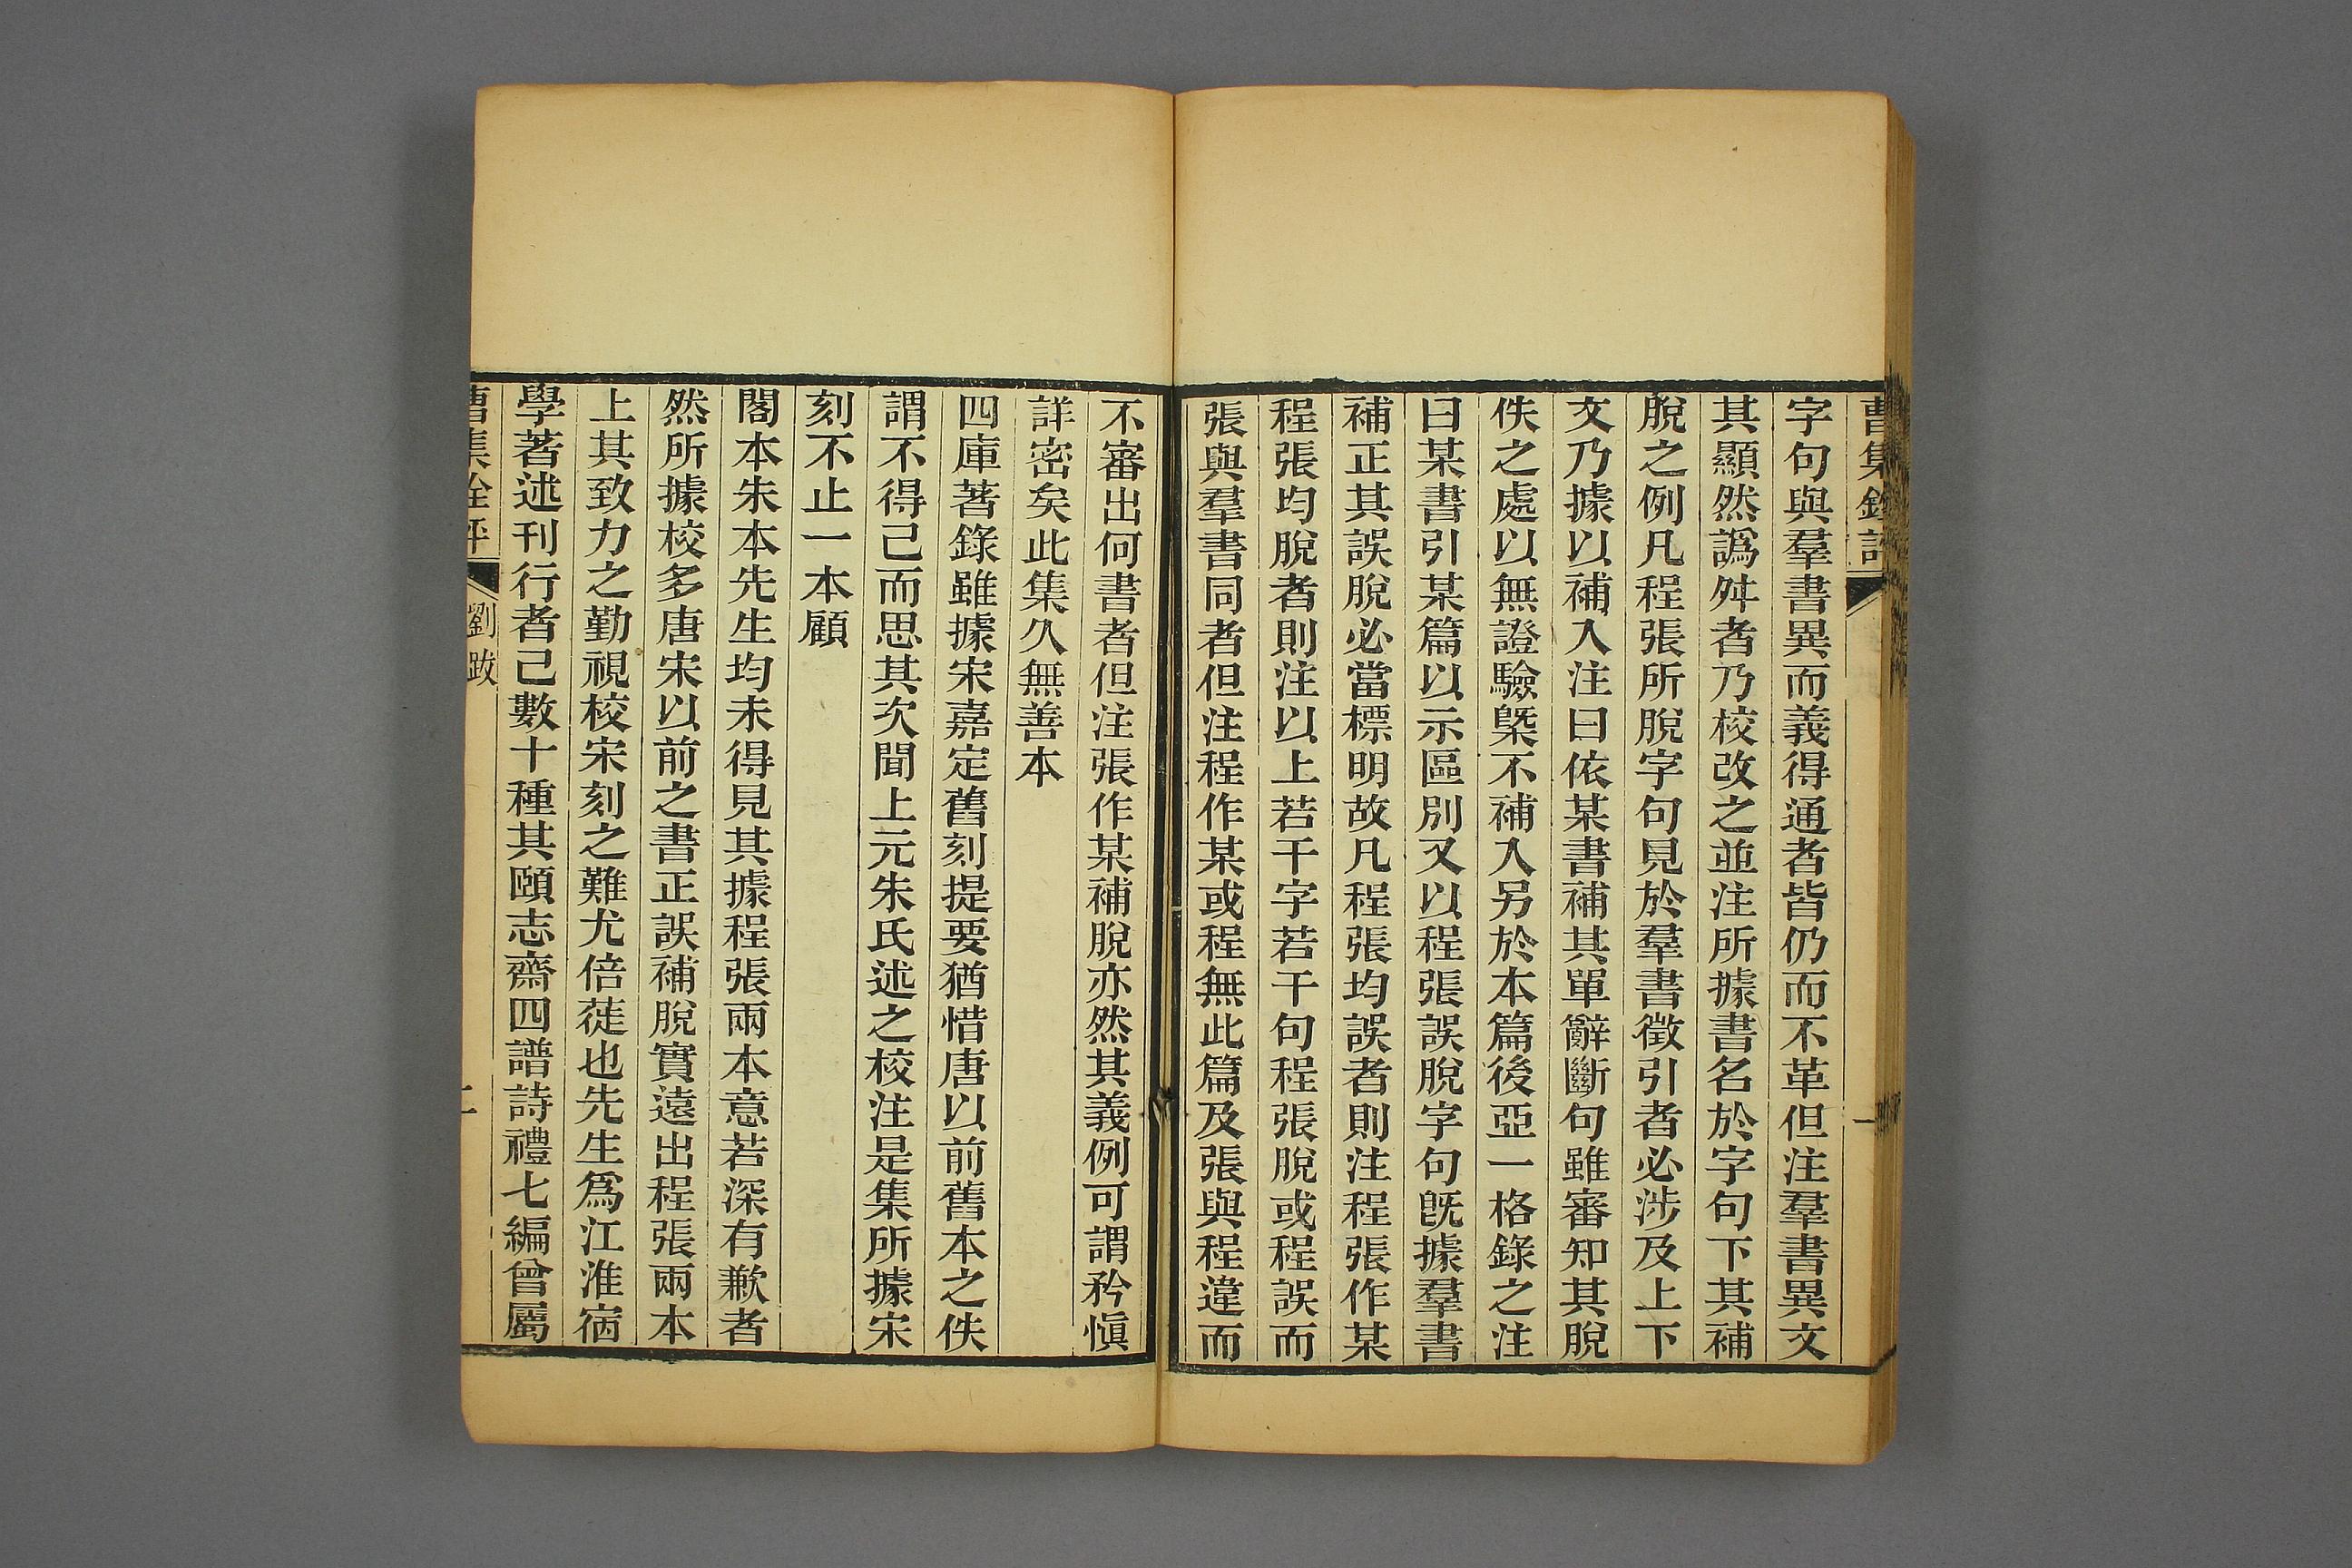 曹集銓評
一
字句與羣書異而義得通者皆仍而不革但注羣書異文
其顯然譌舛者乃校改之並注所據書名於字句下其補
脫之例凡程張所脫字句見於羣書徵引者必涉及上下
文乃據以補入注曰依某書補其單辭斷句雖審知其脫
佚之處以無證驗槩不補入另於本篇後亞一格錄之注
曰某書引某篇以示區別又以程張誤脫字句旣據羣書
補正其誤脫必當標明故凡程張均誤者則注程張作某
程張均脫者則注以上若干字若干句程張脫或程誤而
張與羣書同者但注程作某或程無此篇及張與程違而
不審出何書者但注張作某補脫亦然其義例可謂矜愼
詳密矣此集久無善本
四庫著錄雖據宋嘉定舊刻提要猶惜唐以前舊本之佚
謂不得已而思其次聞上元朱氏述之校注是集所據宋
刻不止一本顧
閣本朱本先生均未得見其據程張兩本意若深有歉者
然所據校多唐宋以前之書正誤補脫實遠出程張兩本
上其致力之勤視校宋刻之難尤倍蓰也先生爲江淮宿
學著述刊行者已數十種其頤志齋四譜詩禮七編曾屬
曹集銓評
劉跋
二